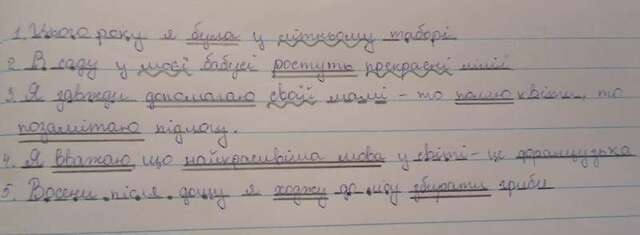 1. Цього року я була у літньому таборі.
2. В саду у моєї бабусі ростуть прекрасні лілії
3. Я завжди допомагаю своїй мамі - то поллю квіти, то
позамітаю підлогу.
4. Я вважаю, що найкрасивіша мова у світі - це французська
5. Восени після дощу я ходжу до лісу збирати гриби